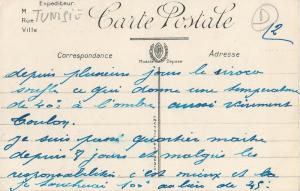 Expéditeur
M TUNISIE
Rue
Ville
Carte Postale
D
12
Correspondance
Adresse
Modèle Déposé
depuis plusieurs jours le siroco
souffle ce qui donne une température
de 40° à l'ombre aussi vivement
Toulon.
je suis passé quartier maître
depuis 8 jours et malgré les
responsabilités c'est mieux et la
je toucherai 100 au lieu de 45: